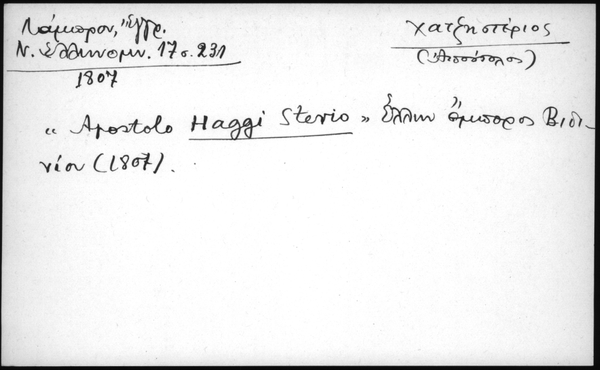 Λάμπρου, Ἔγγρ.
Ν. Ἑλληνομν. 17 σ. 231
1807
Χατζηστέριος
(Ἀπόστολος)
« Apostolo Haggi Sterio » Ἕλλην ἔμπορος Βιδι-
νίου (1807).